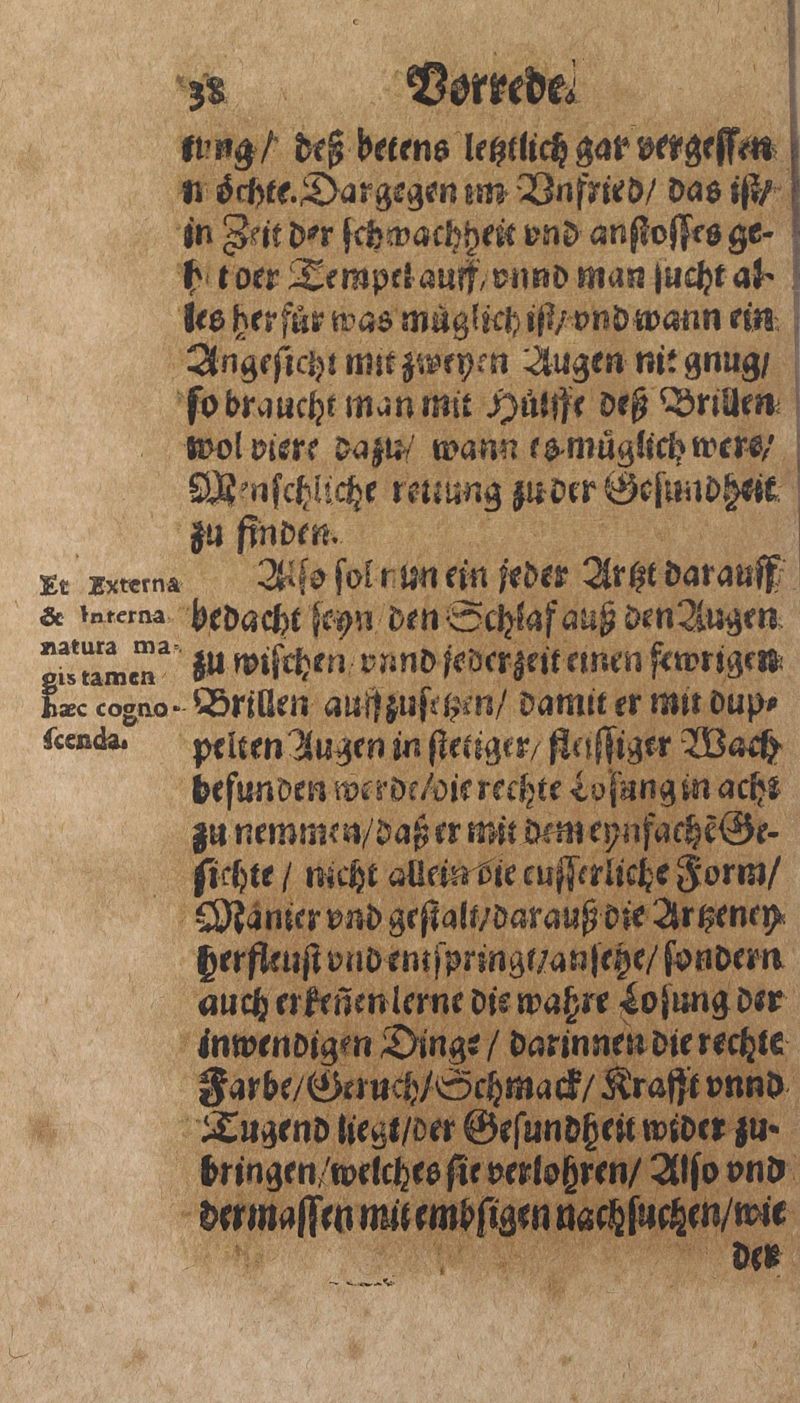 38 Vorrede.
tung / deß betens letztlich gar vergeſſen
möchte. Dargegen im Vnfried / das iſt /
in Zeit der ſchwachheit vnd anſtoſſes ge-
het der Tempel auff / vnnd man ſucht al-
les herfür was müglich iſt / vnd wann ein
Angeſicht mit zweyen Augen nit gnug /
ſo braucht man mit Hülffe deß Brillen
wol viere dazu / wann es müglich were /
Menſchliche rettung zu der Geſundheit
zu finden.
Alſo ſol nun ein jeder Artzt darauff
bedacht ſeyn den Schlaf auß den Augen
zu wiſchen / vnnd jederzeit einen fewrigen
Brillen auffzuſetzen / damit er mit dup-
pelten Augen in ſtetiger / fleiſſiger Wach
befunden werde / die rechte Loſung in acht
zu nemmen / daß er mit dem eynfachē Ge-
ſichte / nicht allein die euſſerliche Form /
Mänier vnd geſtalt / darauß die Artzeney
herfleuſt vnd entſpringt / anſehe / ſondern
auch erkeñen lerne die wahre Loſung der
inwendigen Dinge / darinnen die rechte
Farbe / Geruch / Schmack / Krafft vnnd
Tugend liegt / der Geſundheit wider zu-
bringen / welches ſie verlohren / Alſo vnd
dermaſſen mit embſigen nachſuchen / wie
der
Et Externa
& Interna
natura ma-
gis tamen
hæc cogno-
ſcenda.